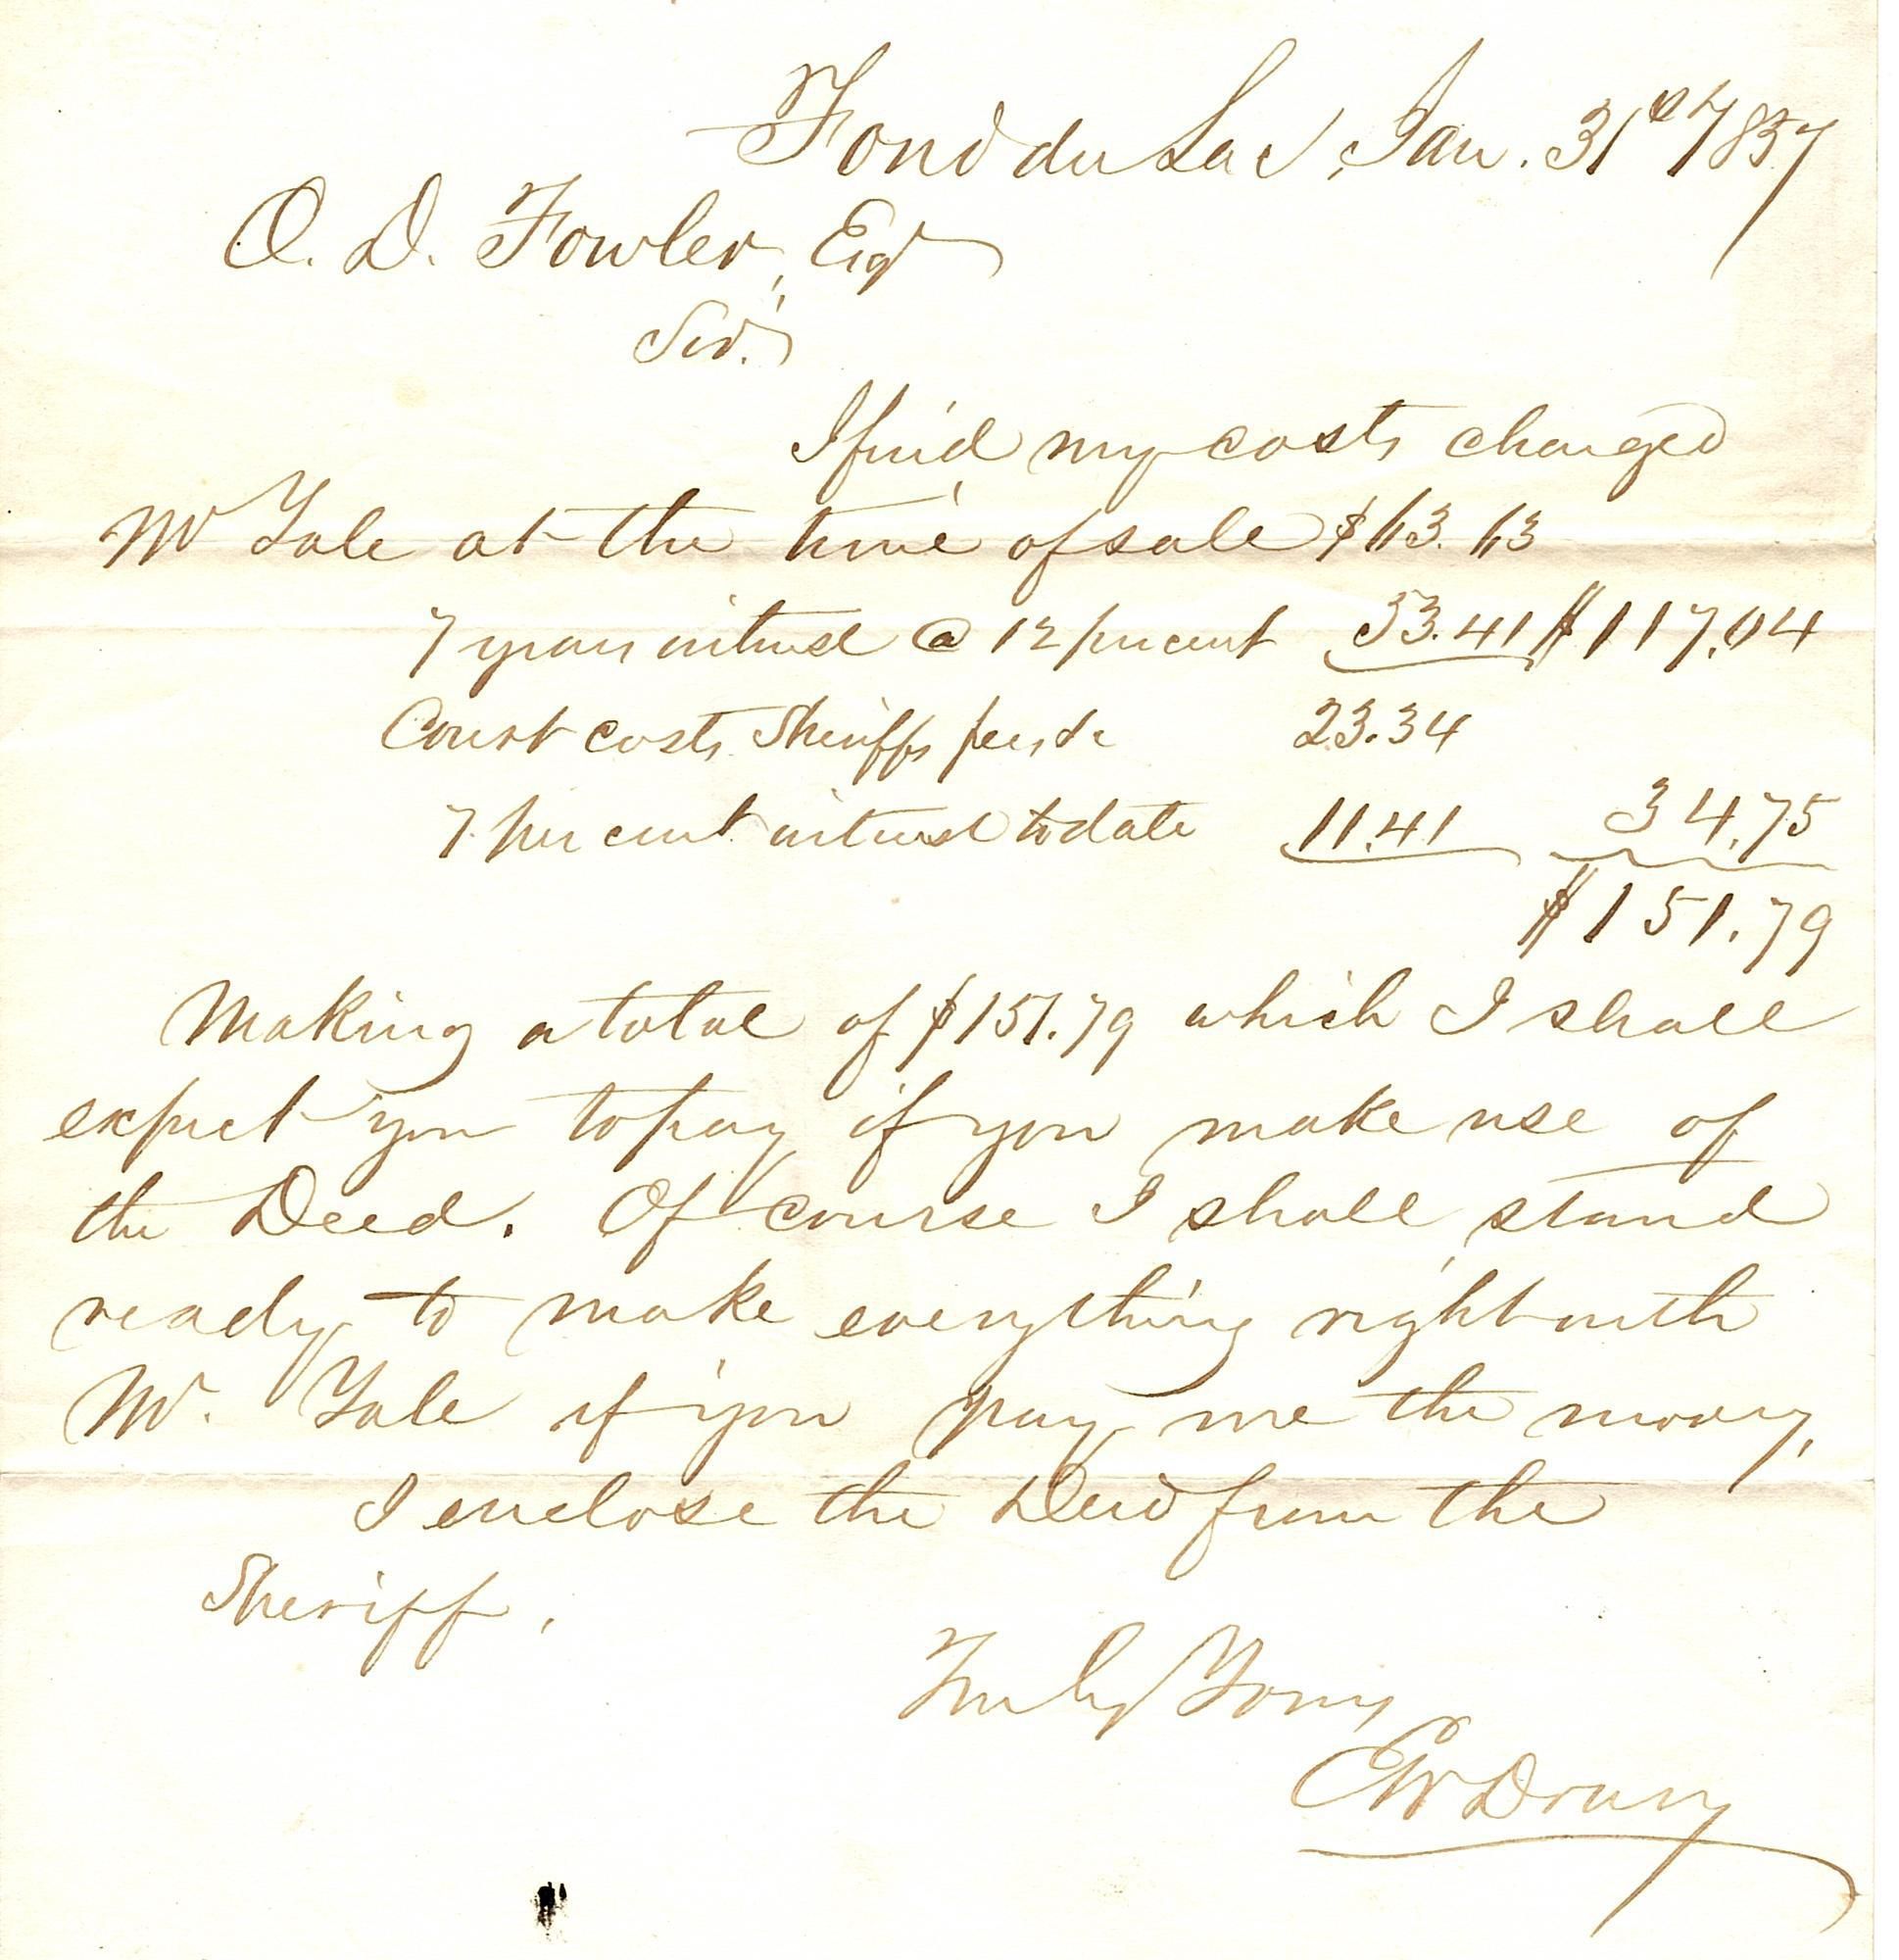 Fond du Lac, Jan. 31st 1857
O. D. Fowler, Esq
Sir.
I find my costs charged
Mr Yale at the time of sale $63.63
7 years interest @ 12 per cent 53.41 $117.04
Court costs Sheriffs fees &c 23.34
7 per cent interest to date 11.41 34.75
$151.79
Making a total of $151.79 which I shall
expect you to pay if you make use of
the Deed. Of course I shall stand
ready to make everything right with
Mr. Yale if you pay me the money.
I enclose the Deed from the
Sheriff.
Truly Yours
EW Drury